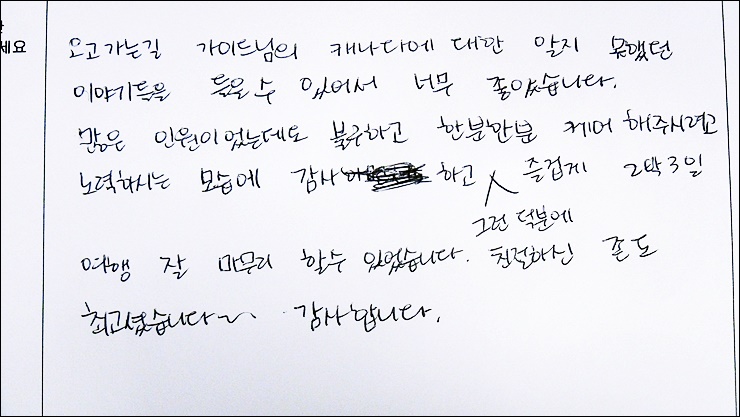 세요
오고가는길 가이드님의 캐나다에 대한 알지 못했던
이야기들을 들을수 있어서 너무 좋았습니다.
많은 인원이었는데도 불구하고 한분한분 케어 해주시려고
노력하시는 모습에 감사 하고 즐겁게 2박3일
그런 덕분에
여행 잘 마무리 할수 있었습니다. 친절하신 존도
최고셨습니다~ 감사합니다.